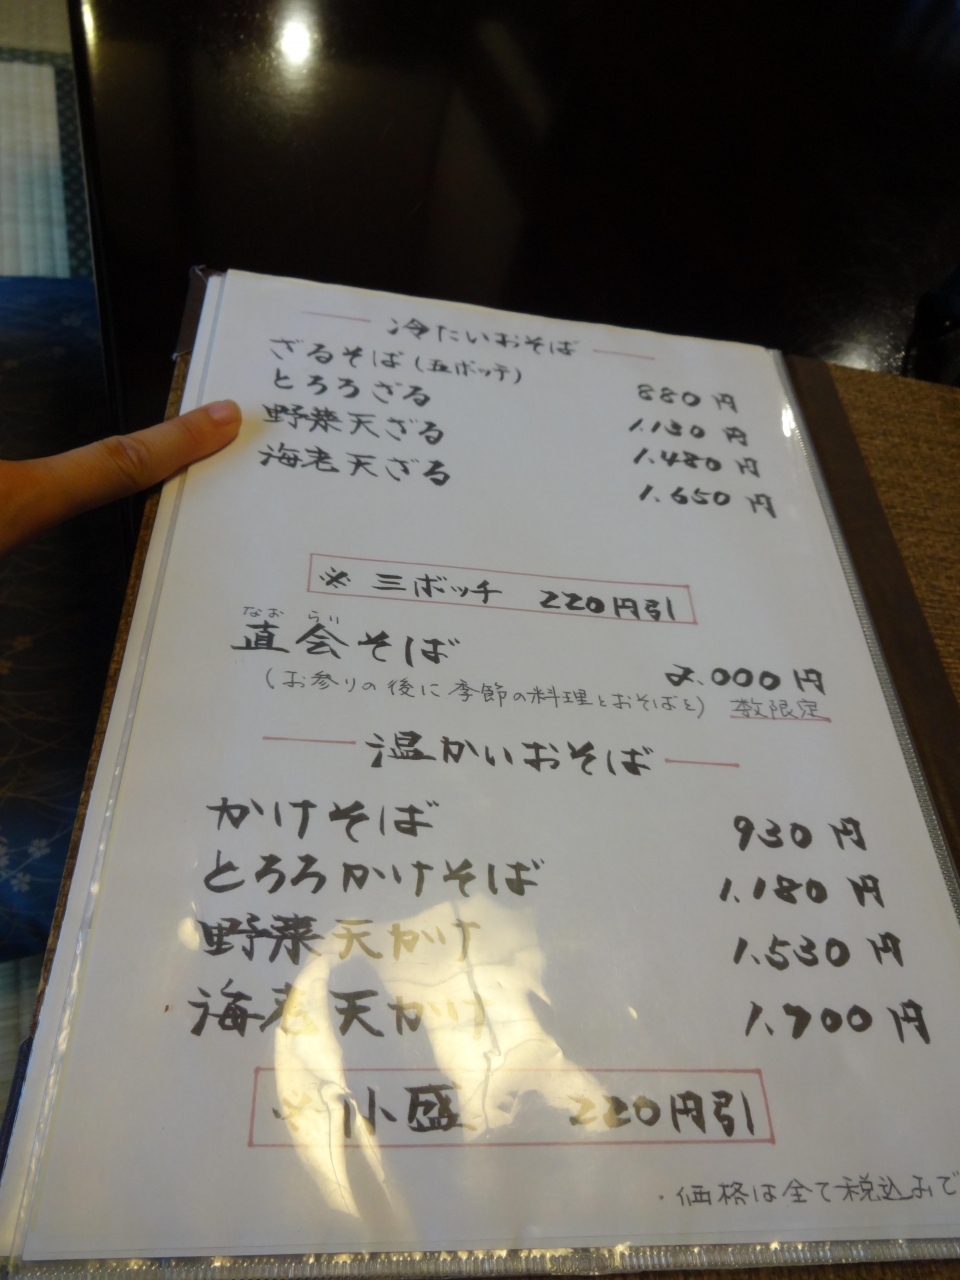 冷たいおそば
ざるそば(五ボッチ) 880円
とろろざる 1.130円
野菜天ざる 1.480円
海老天ざる 1.650円
※ 三ボッチ 220円引
なお らい
直会そば 2.000円
(お参りの後に季節の料理とおそばを) 数限定
温かいおそば
かけそば 930円
とろろかけそば 1.180円
野菜天かけ 1.530円
海老天かけ 1.700円
※ 小盛 220円引
・価格は全て税込みで